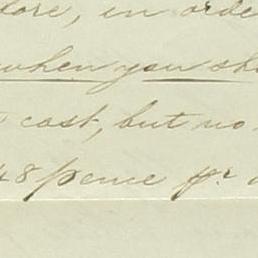 fore, in orde
when you sho
cost, but no
48 pence pr. a